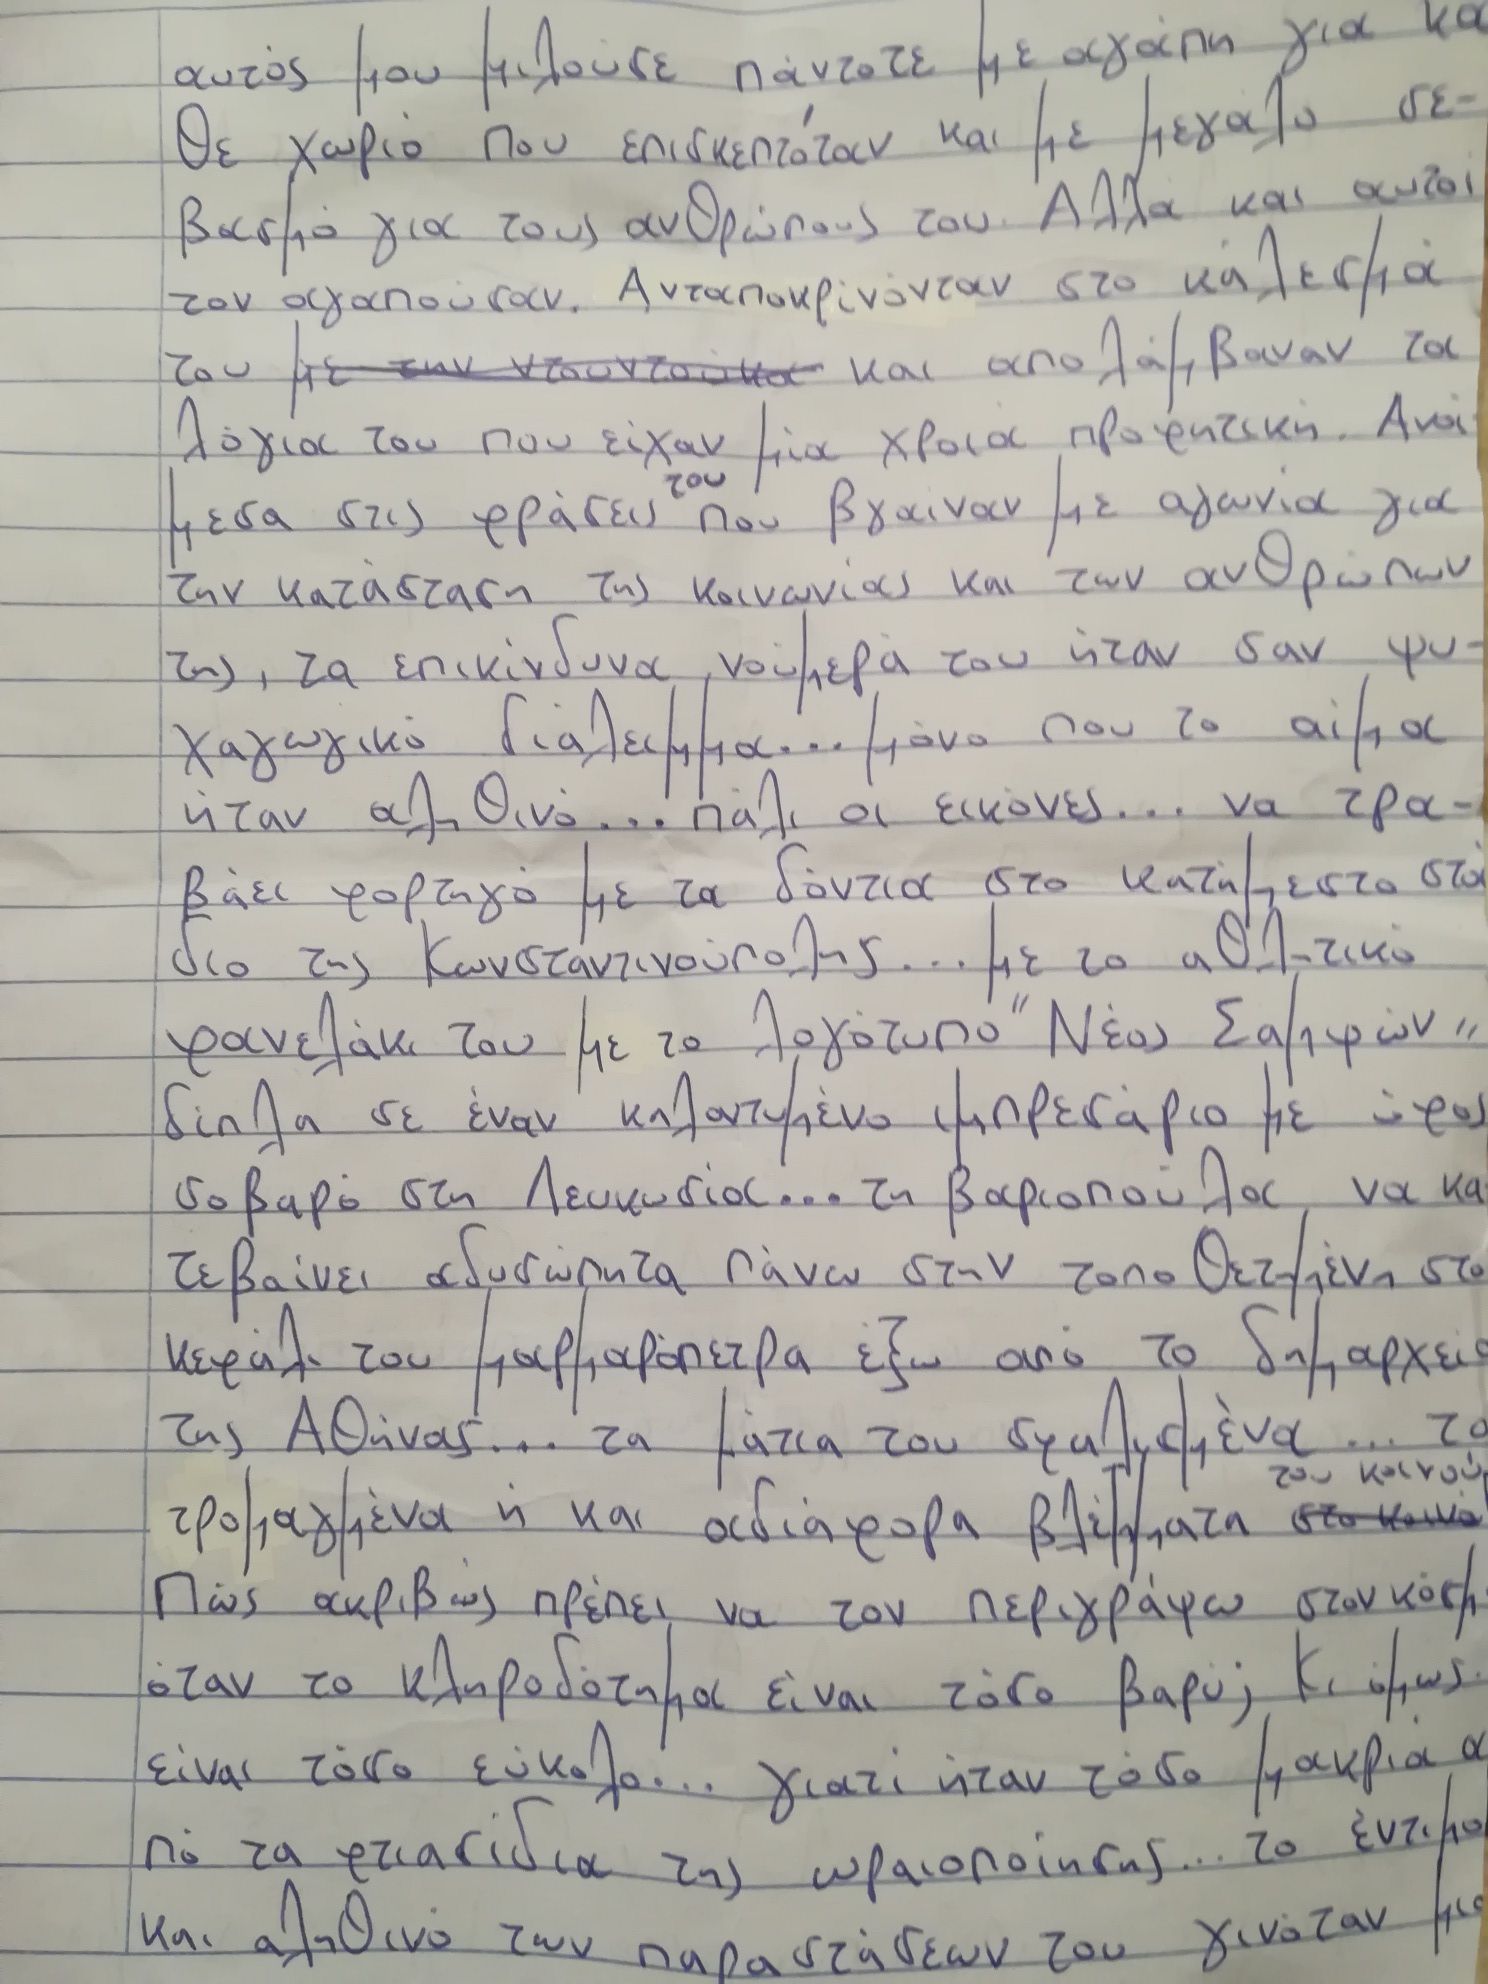 αυτός μου μιλούσε πάντοτε με αγάπη για κα
θε χωριό που επισκεπτόταν και με μεγάλο σε-
βασμό για τους ανθρώπους του. Αλλά και αυτοί
τον αγαπούσαν. Ανταποκρίνονταν στο κάλεσμά
του με την ντουντούκα και απολάμβαναν τα
λόγια του που είχαν μία χροιά προφητική. Ανά
του
μεσα στις φράσεις που βγαίναν με αγωνία για
την κατάσταση της κοινωνίας και των ανθρώπων
της, τα επικίνδυνα νούμερά του ήταν σαν ψυ-
χαγωγικό διάλειμμα... μόνο που το αίμα
ήταν αληθινό... πάλι οι εικόνες... να τρα-
βάει φορτηγό με τα δόντια στο κατάμεστο στά
διο της Κωνσταντινούπολης... με το αθλητικό
φανελάκι του με το λογότυπο "Νέος Σαμψών"
δίπλα σε έναν κηλαντημένο ιμπρεσάριο με ύφος
σοβαρό στη Λευκωσία... τη βαριοπούλα να κα
τεβαίνει αδυσώπητα πάνω στην τοποθετημένη στο
κεφάλι του μαρμαρόπετρα έξω από το δημαρχείο
της Αθήνας... τα μάτια του σφαλισμένα... τα
του κοινού
τρομαγμένα ή και αδιάφορα βλέμματα στο κοινό
Πώς ακριβώς πρέπει να τον περιγράψω στον κόσμ
όταν το κληροδότημα είναι τόσο βαρύ; Κι όμως
είναι τόσο εύκολο... γιατί ήταν τόσο μακριά α
πό τα φτιασίδια της ωραιοποίησης... το έντιμο
και αληθινό των παραστάσεων του γινόταν μια